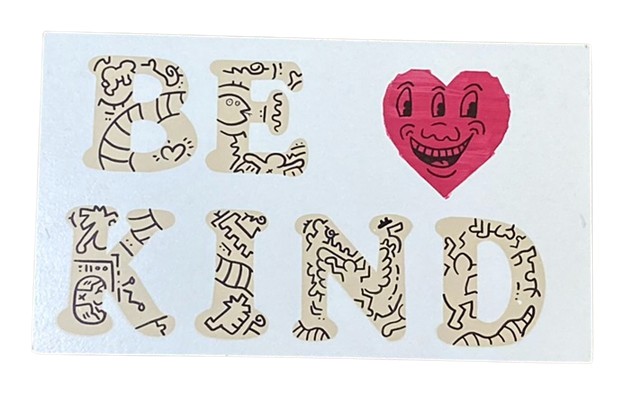 BE
KIND